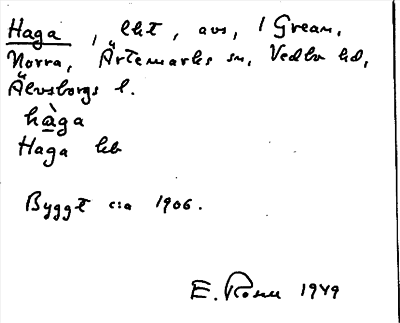 Haga, lht, avs, / Grean,
Norra, Ärtemarks sn, Vedbo hd,
Älvsborgs l.
hàga
Haga hb
Byggt c:a 1906.
E. Rosell 1949